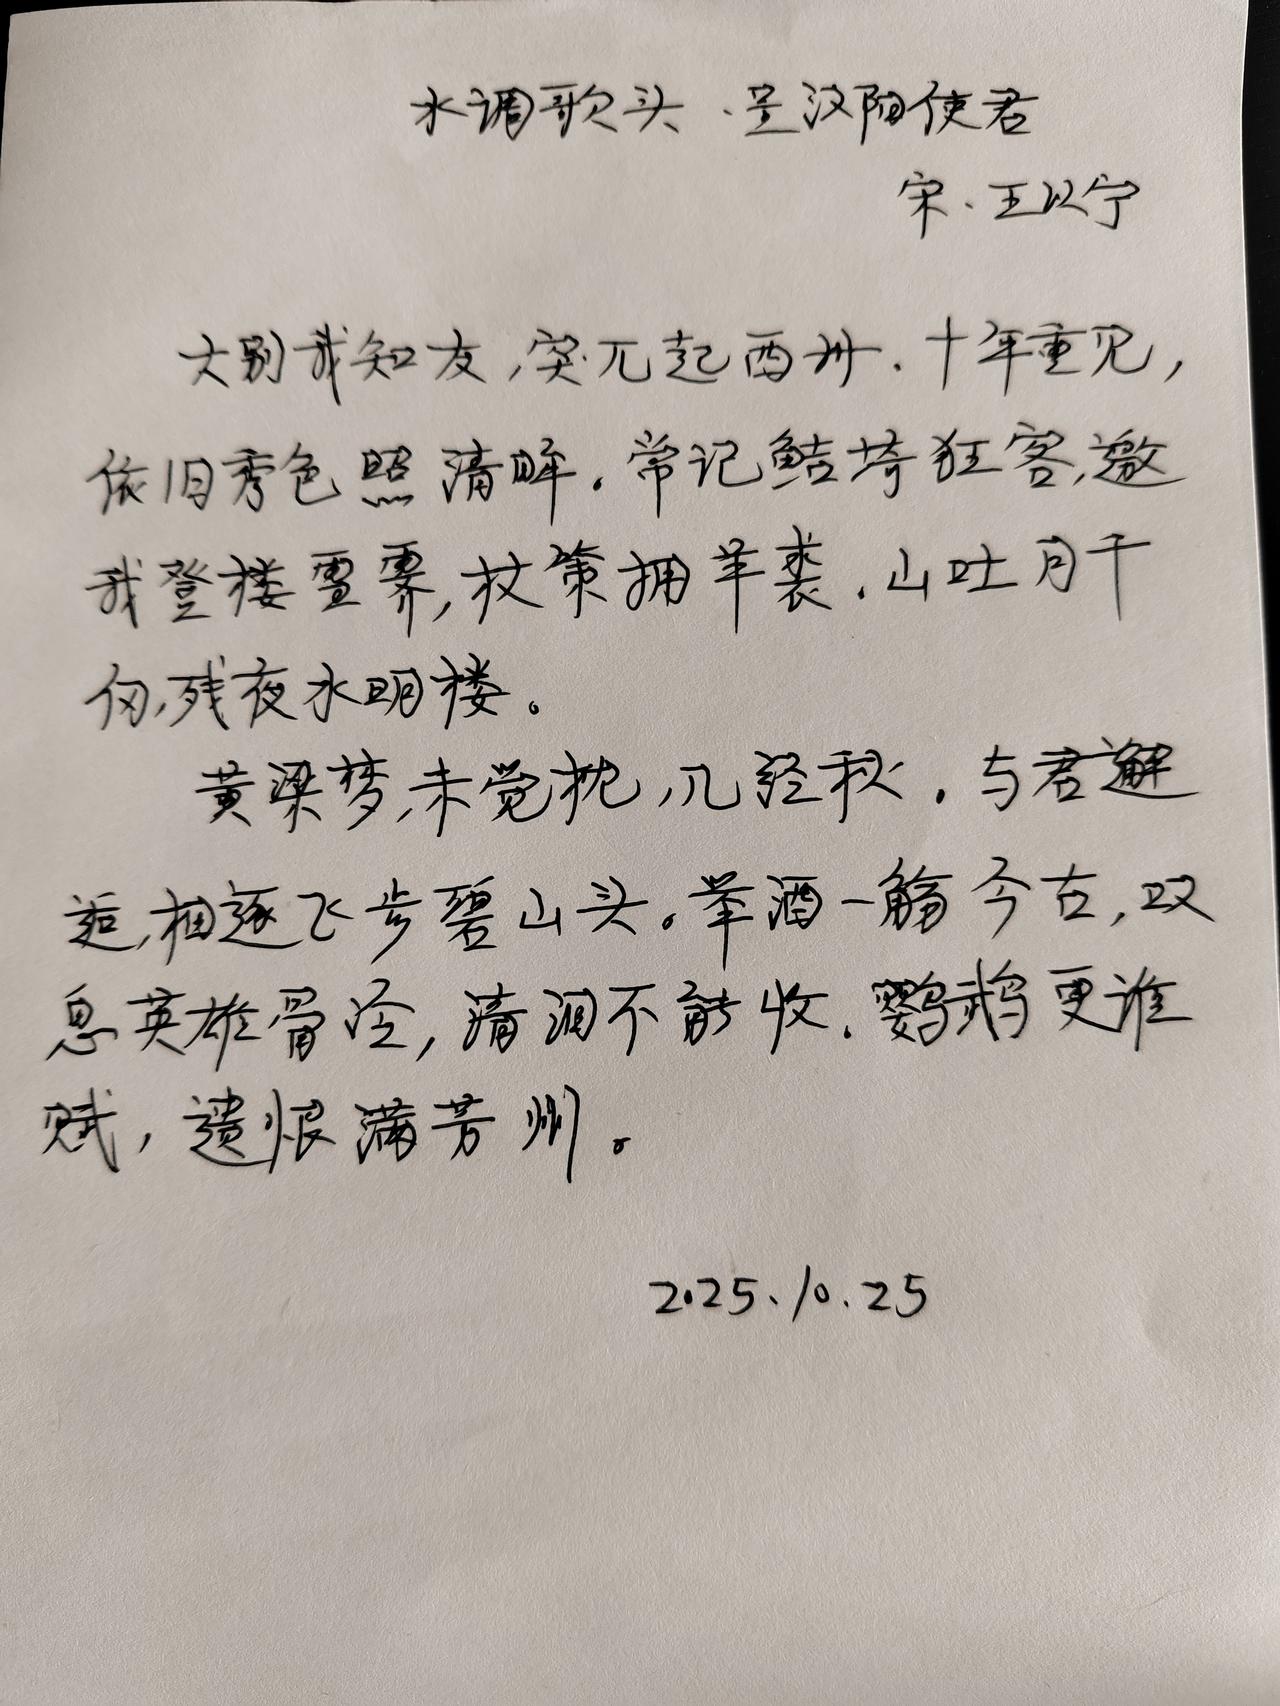 水调歌头·呈汉阳使君
宋、王以宁
大别我知友,突兀起西州.十年重见,
依旧秀色照清眸.常记鲒埼狂客,邀
我登楼雪霁,杖策拥羊裘.山吐月千
仞,残夜水明楼。
黄梁梦,未觉枕,几经秋.与君邂
逅,相逐飞步碧山头。举酒一觞今古,叹
息英雄骨冷,清泪不能收.鹦鹉更谁
赋,遗恨满芳州。
2025、10.25